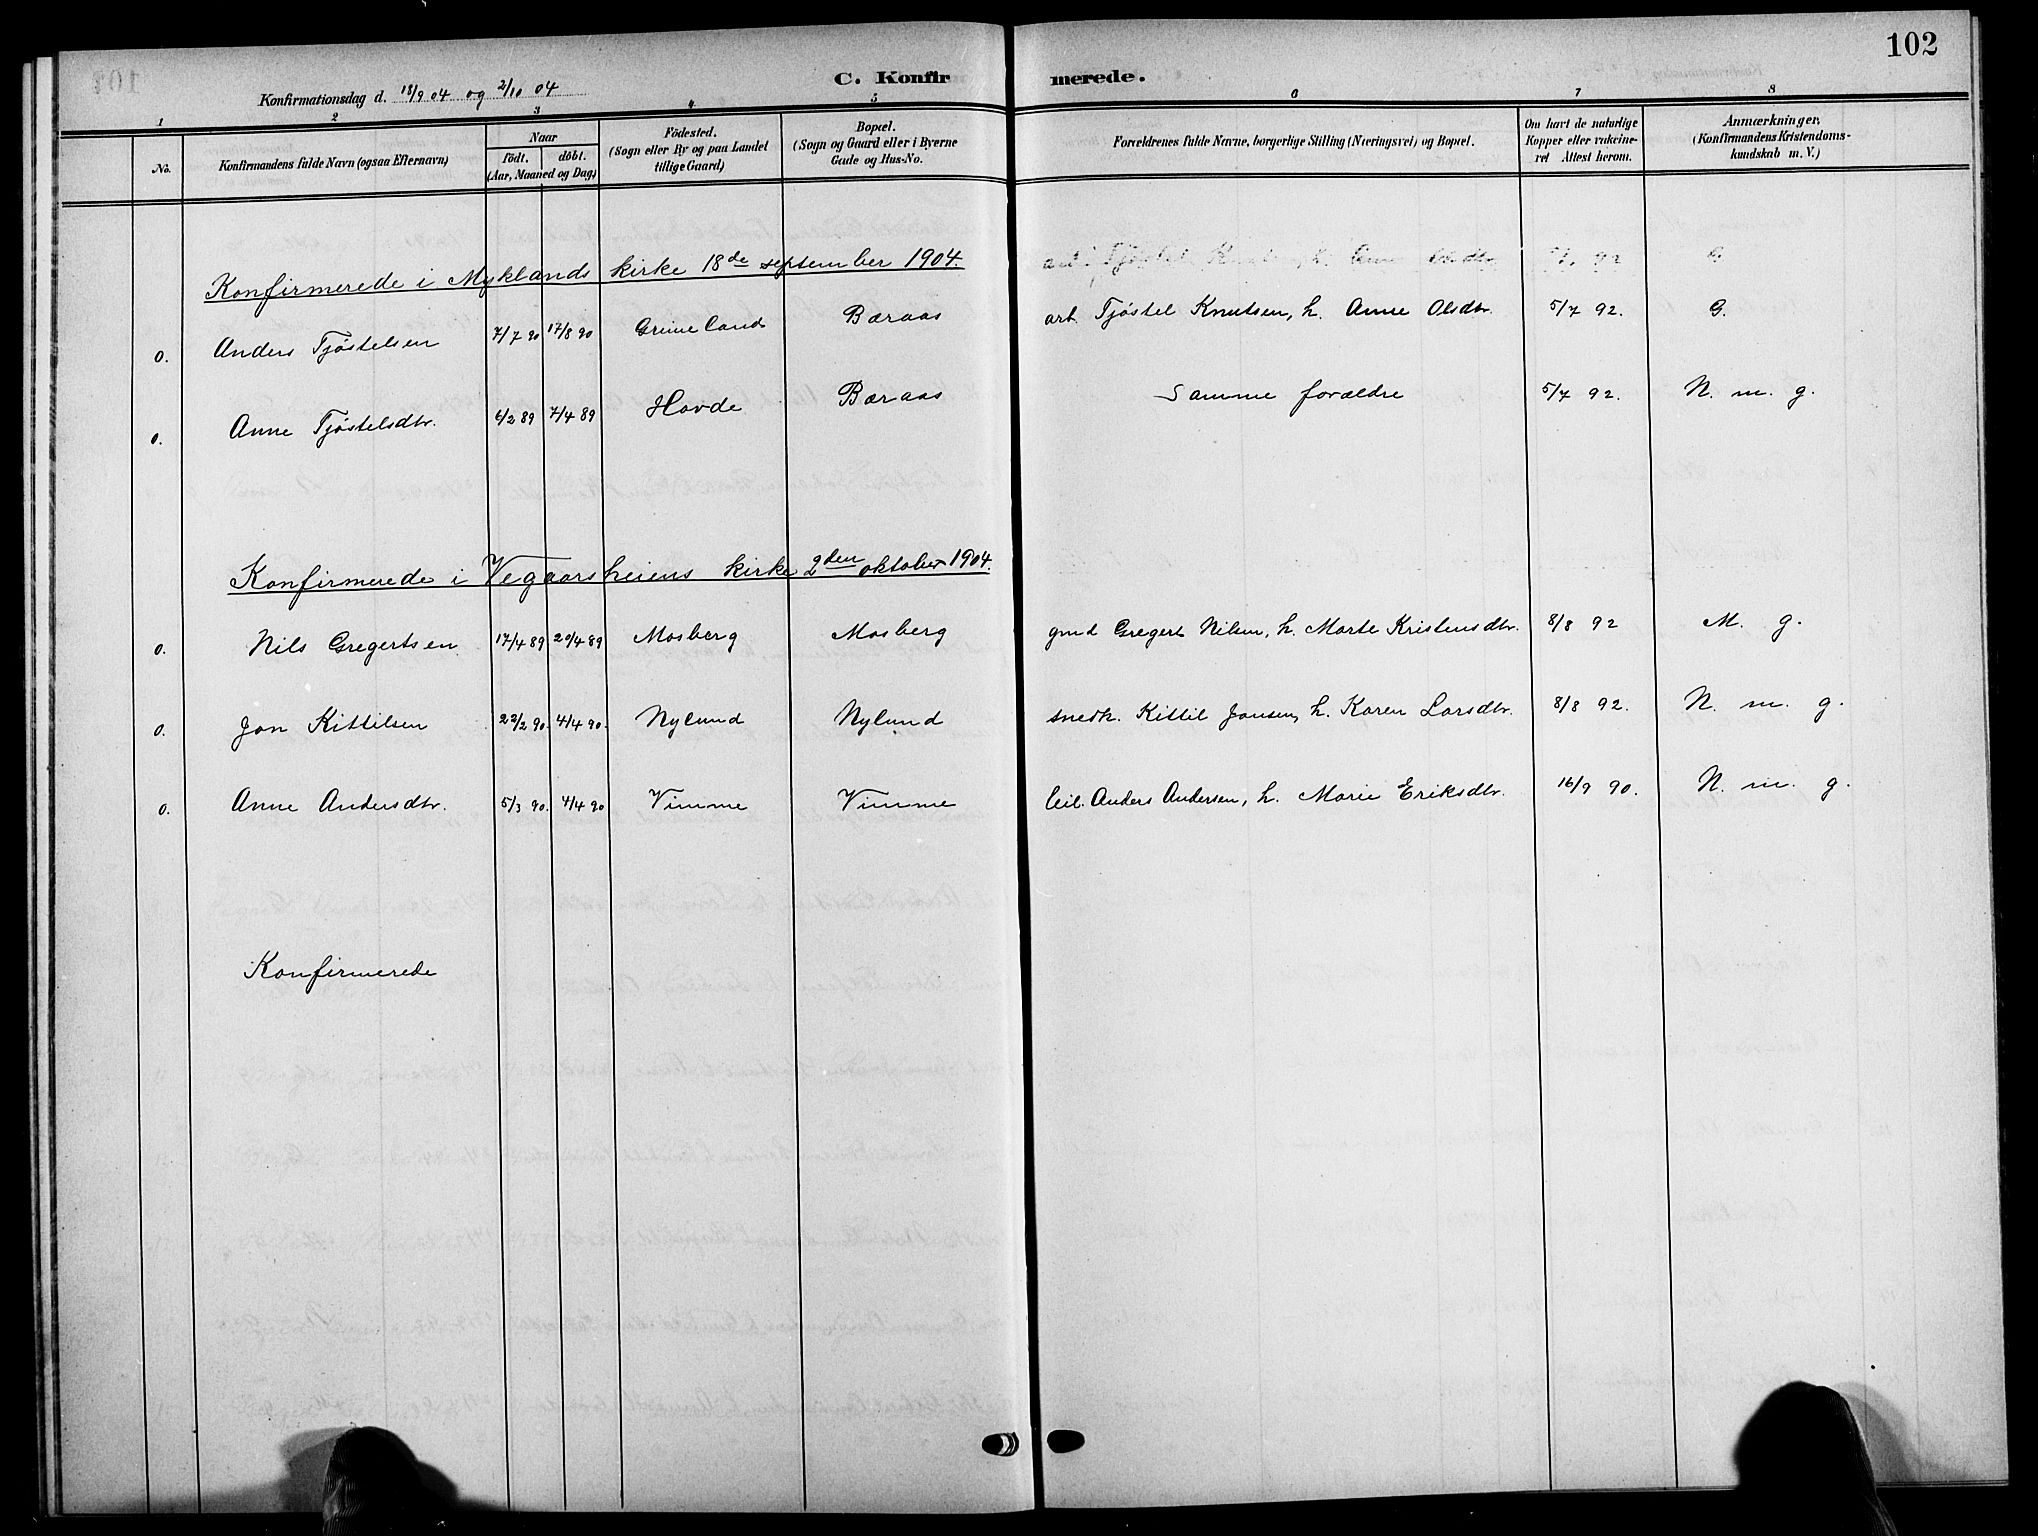 102
C. Konfirmerede.
Konfirmationsdag d. 18/9 04 og 2/10 04
1 2 3 4 5 6 7 8
No. Konfirmandens fulde Navn (ogsaa Efternavn) Naar født. døbt. (Aar, Maaned og Dag) Fødested. (Sogn eller By og paa Landet tillige Gaard) Bopæl. (Sogn og Gaard eller i Byerne Gade og Hus-No. Forældrenes fulde Navne, borgerlige Stilling (Næringsvei) og Bopæl. Om havt de naturlige Kopper eller vakcineret Attest herom. Anmærkninger. (Konfirmandens Kristendomskundskab m. V.)
Konfirmerede i Myklands kirke 18de september 1904.
o. Anders Tjøstelsen 7/7 90 17/8 90 Grimeland Bæraas arb. Tjøstel Knutsen, h. Anne Olsdtr. 5/7 92. G.
o. Anne Tjøstelsdtr. 6/2 89 7/4 89 Hovde Bæraas Samme forældre 5/7 92. N. m. g.
Konfirmerede i Vegaarsheiens kirke 2den oktober 1904.
o. Nils Gregertsen 17/4 89 20/4 89 Mosberg Mosberg gmd Gregert Nilsen, h. Marte Kristensdtr. 8/8 92 M. g.
o. Jon Kittilsen 22/2 90. 4/4 90. Nylund Nylund snedk. Kittil Jonsen, h. Karen Larsdtr. 8/8 92. N. m. g.
o. Anne Andersdtr. 5/3 90. 4/4 90 Vimme Vimme leil. Anders Andersen, h. Marie Eriksdtr. 16/9 90. N. m. g.
Konfirmerede